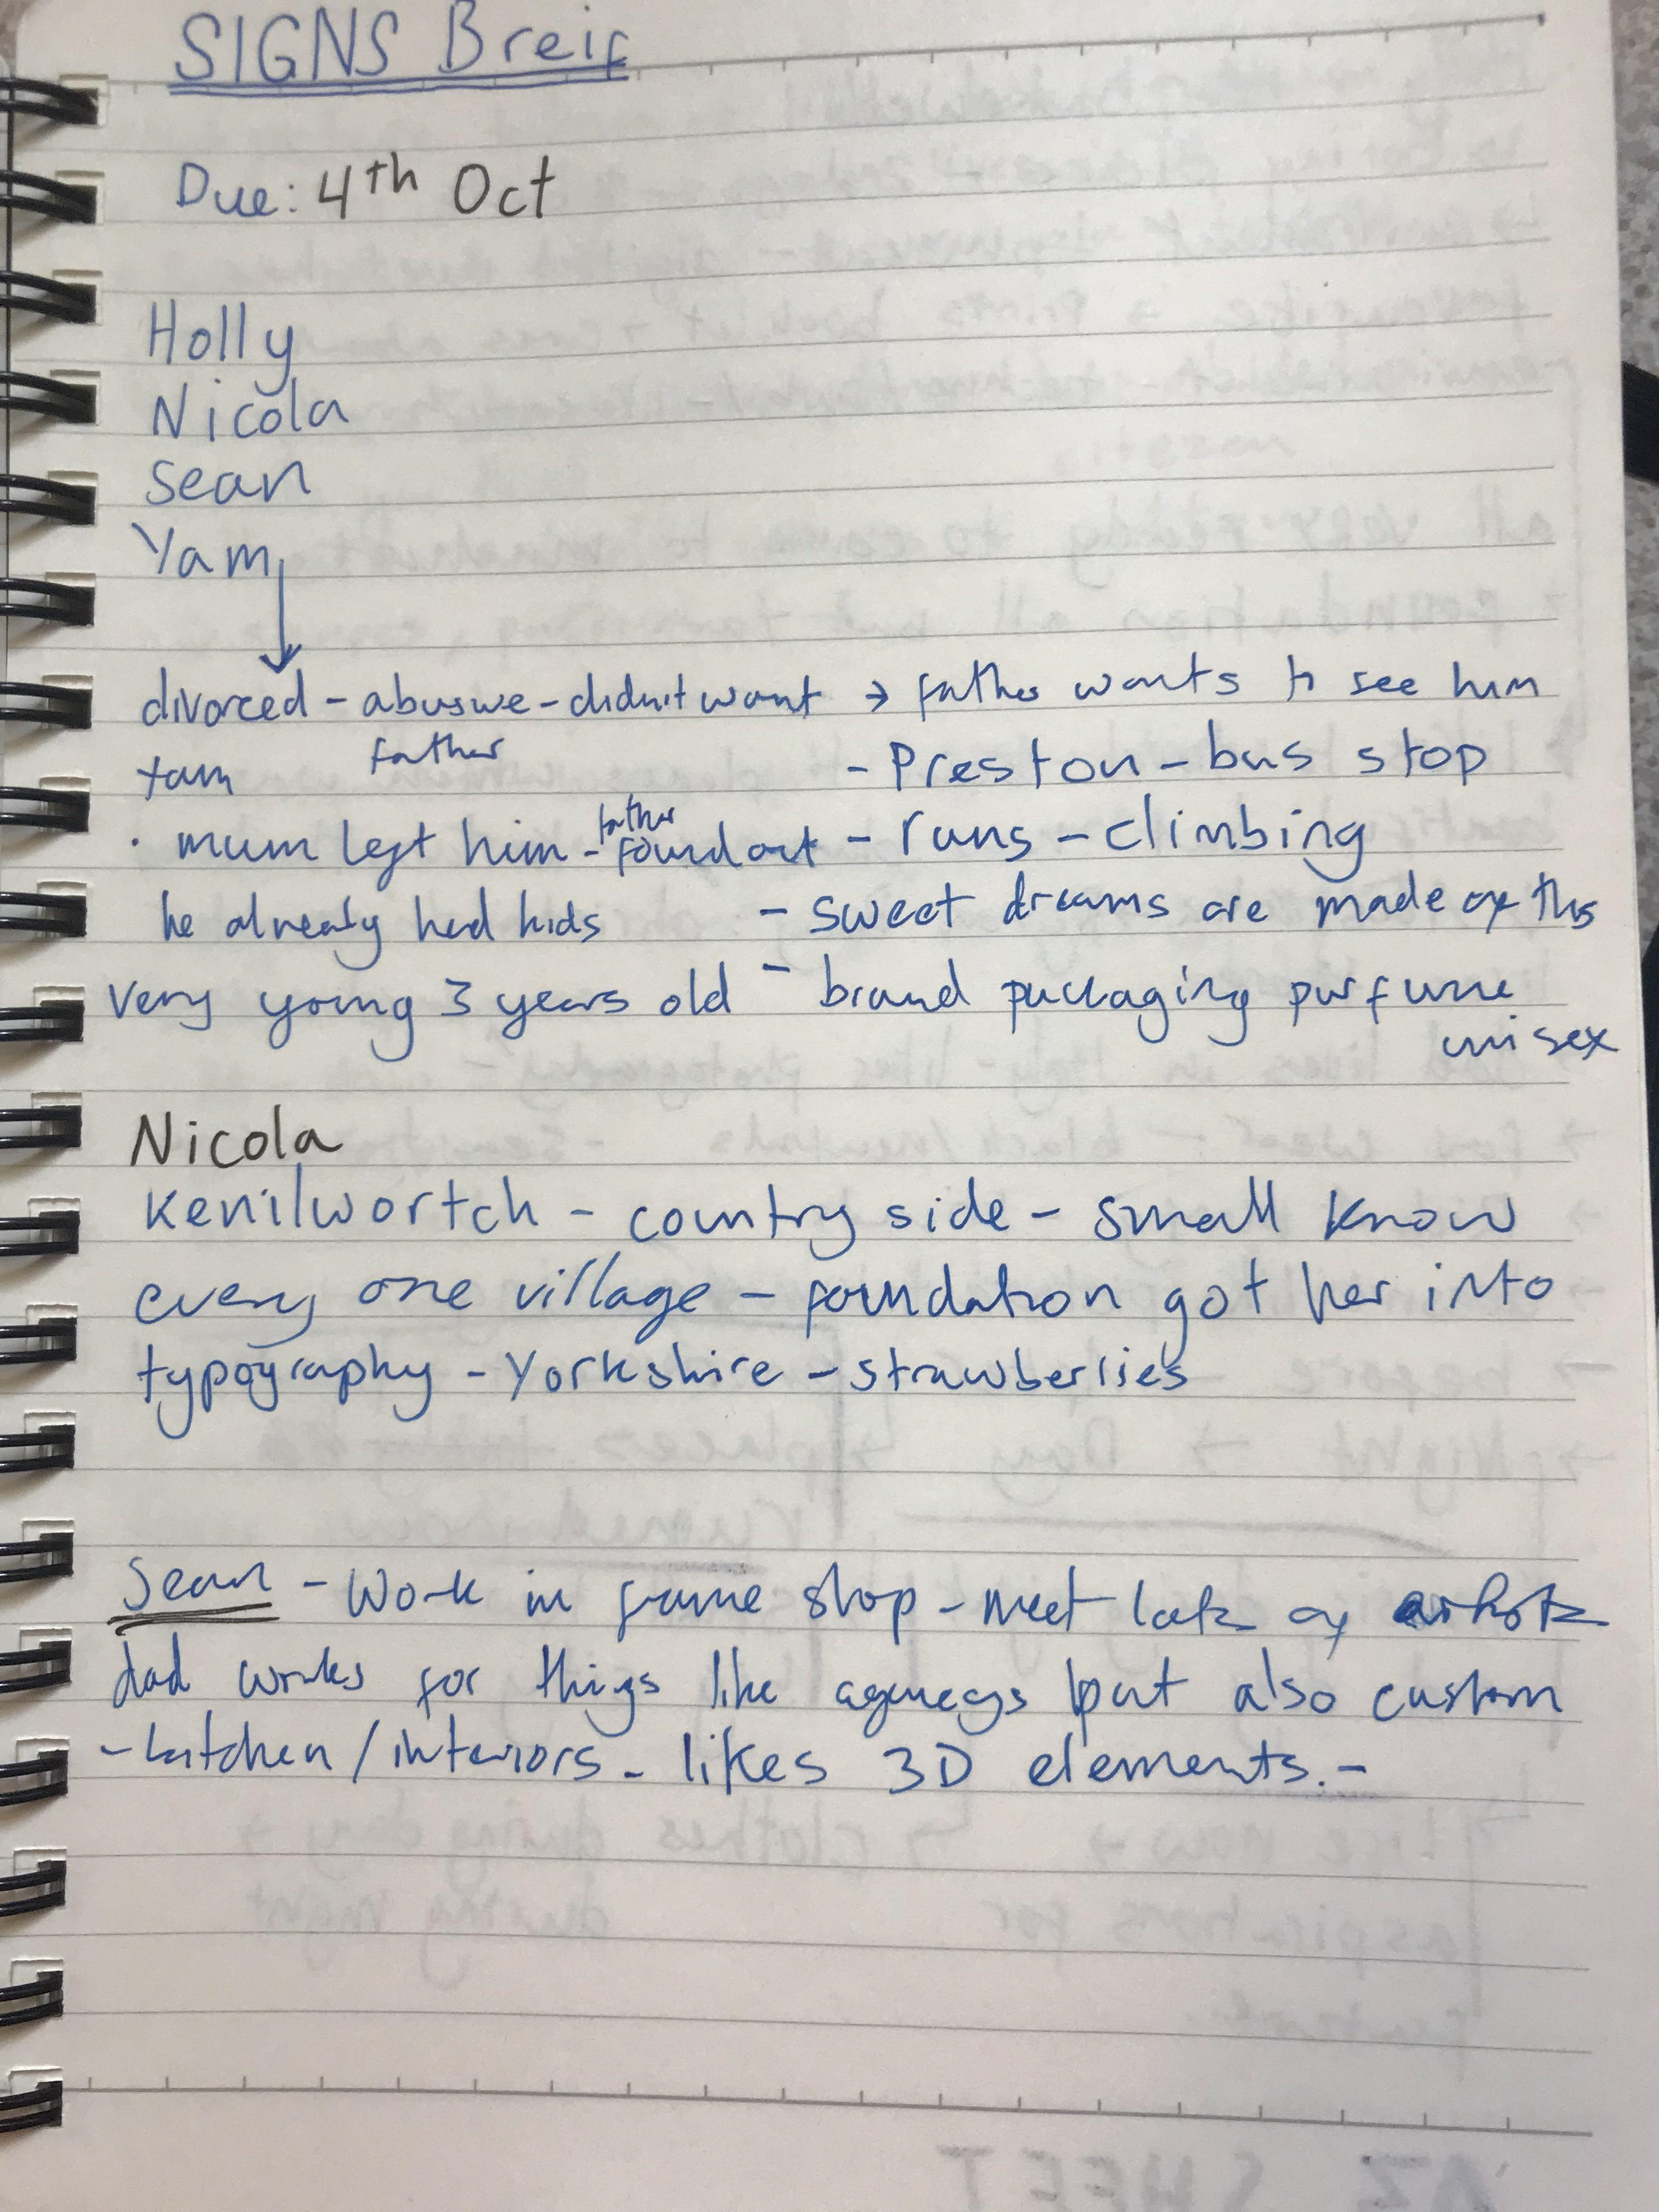 SIGNS Breif
Due: 4th Oct
Holly
Nicola
Sean
Yam
divorced - abusive - didn't want → father wants to see him
Yam father - Preston - bus stop
· mum left him - father found out - runs - climbing
he already had kids - sweet dreams are made of this
very young 3 years old - brand packaging purfume
unisex
Nicola
Kenilwortch - country side - small know
every one village - foundation got her into
typography - Yorkshire - strawberries
Sean - Work in frame shop - meet lots of
dad works for things like agencys but also custom
- kitchen / interiors - likes 3D elements. -